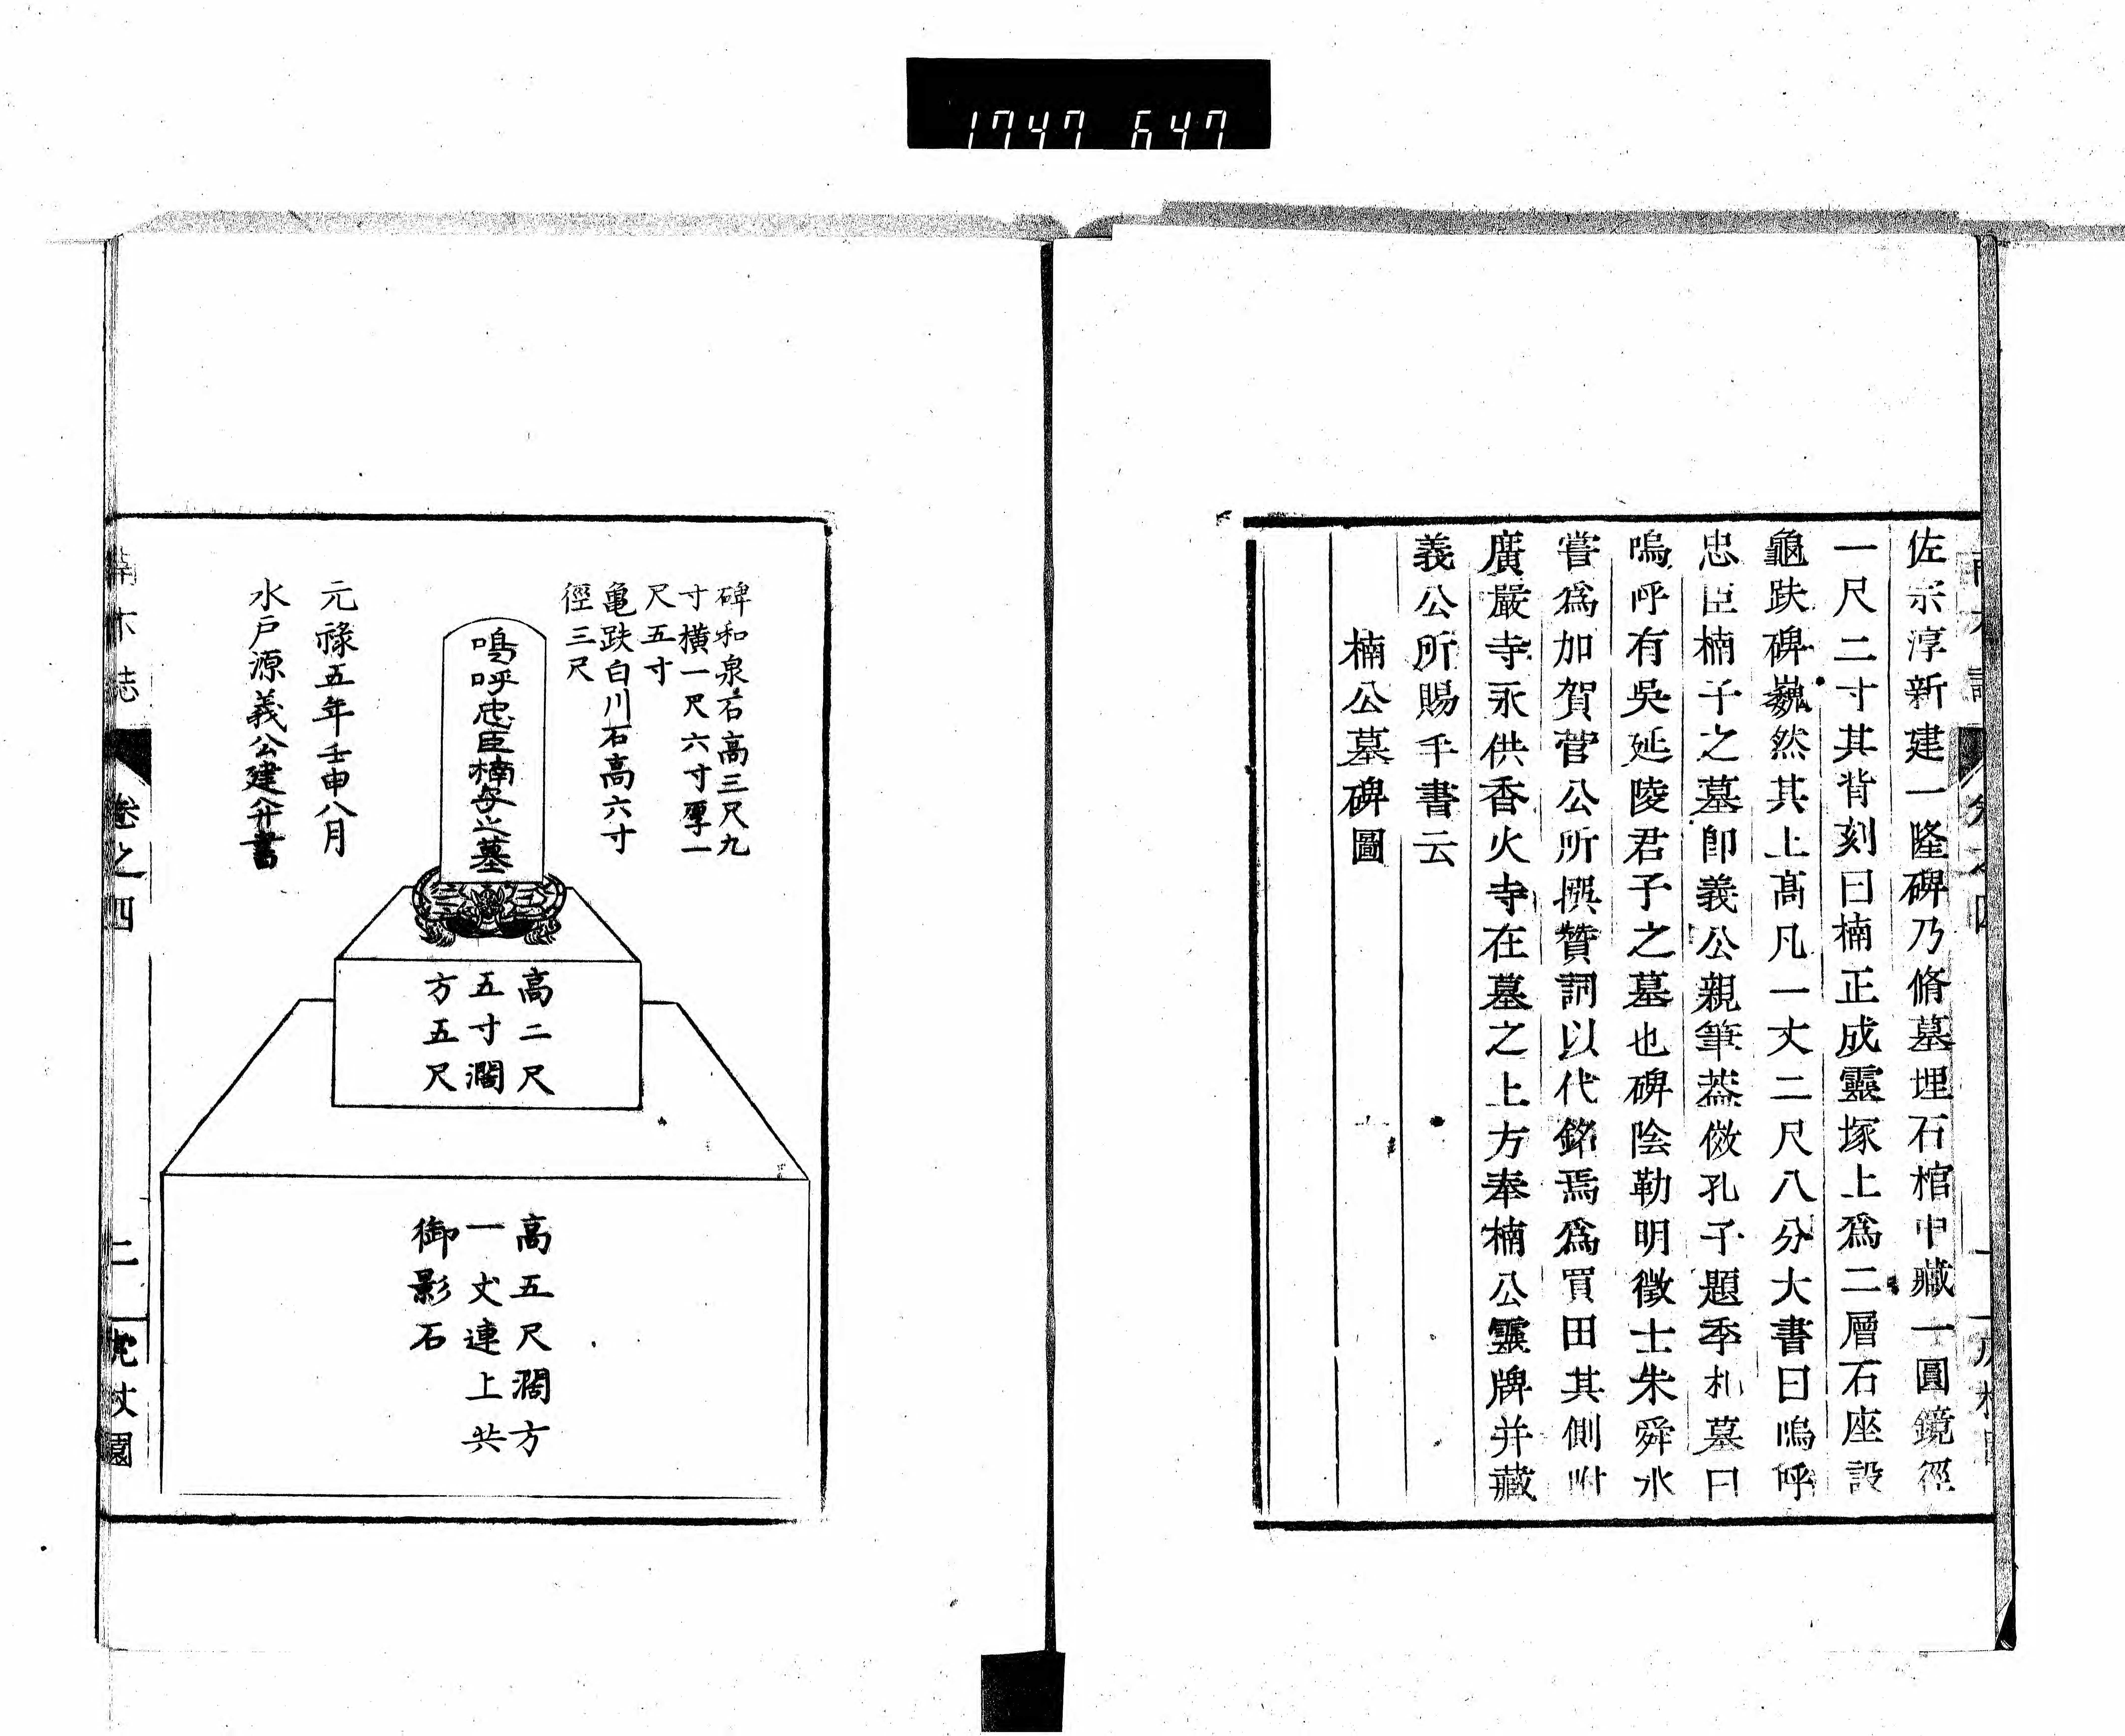 1747 647
佐宗淳新建一隆碑乃脩墓埋石棺中藏一圓鏡徑
一尺二寸其背刻曰楠正成靈塚上爲二層石座設
龜趺碑巍然其上髙凡一丈二尺八分大書曰嗚呼
忠臣楠子之墓卽義公親筆葢倣孔子題季札墓曰
嗚呼有吳延陵君子之墓也碑陰勒明徵士朱舜水
嘗爲加賀菅公所撰贊詞以代銘焉爲買田其側附
廣嚴寺永供香火寺在墓之上方奉楠公靈牌并藏
義公所賜手書云
楠公墓碑圖
碑和泉石高三尺九
寸橫一尺六寸厚一
尺五寸
亀趺白川石高六寸
徑三尺
嗚呼忠臣楠子之墓
元祿五年壬申八月
水戶源義公建并書
高二尺
五寸濶
方五尺
高五尺濶方
一丈連上共
御影石
卷之四
二